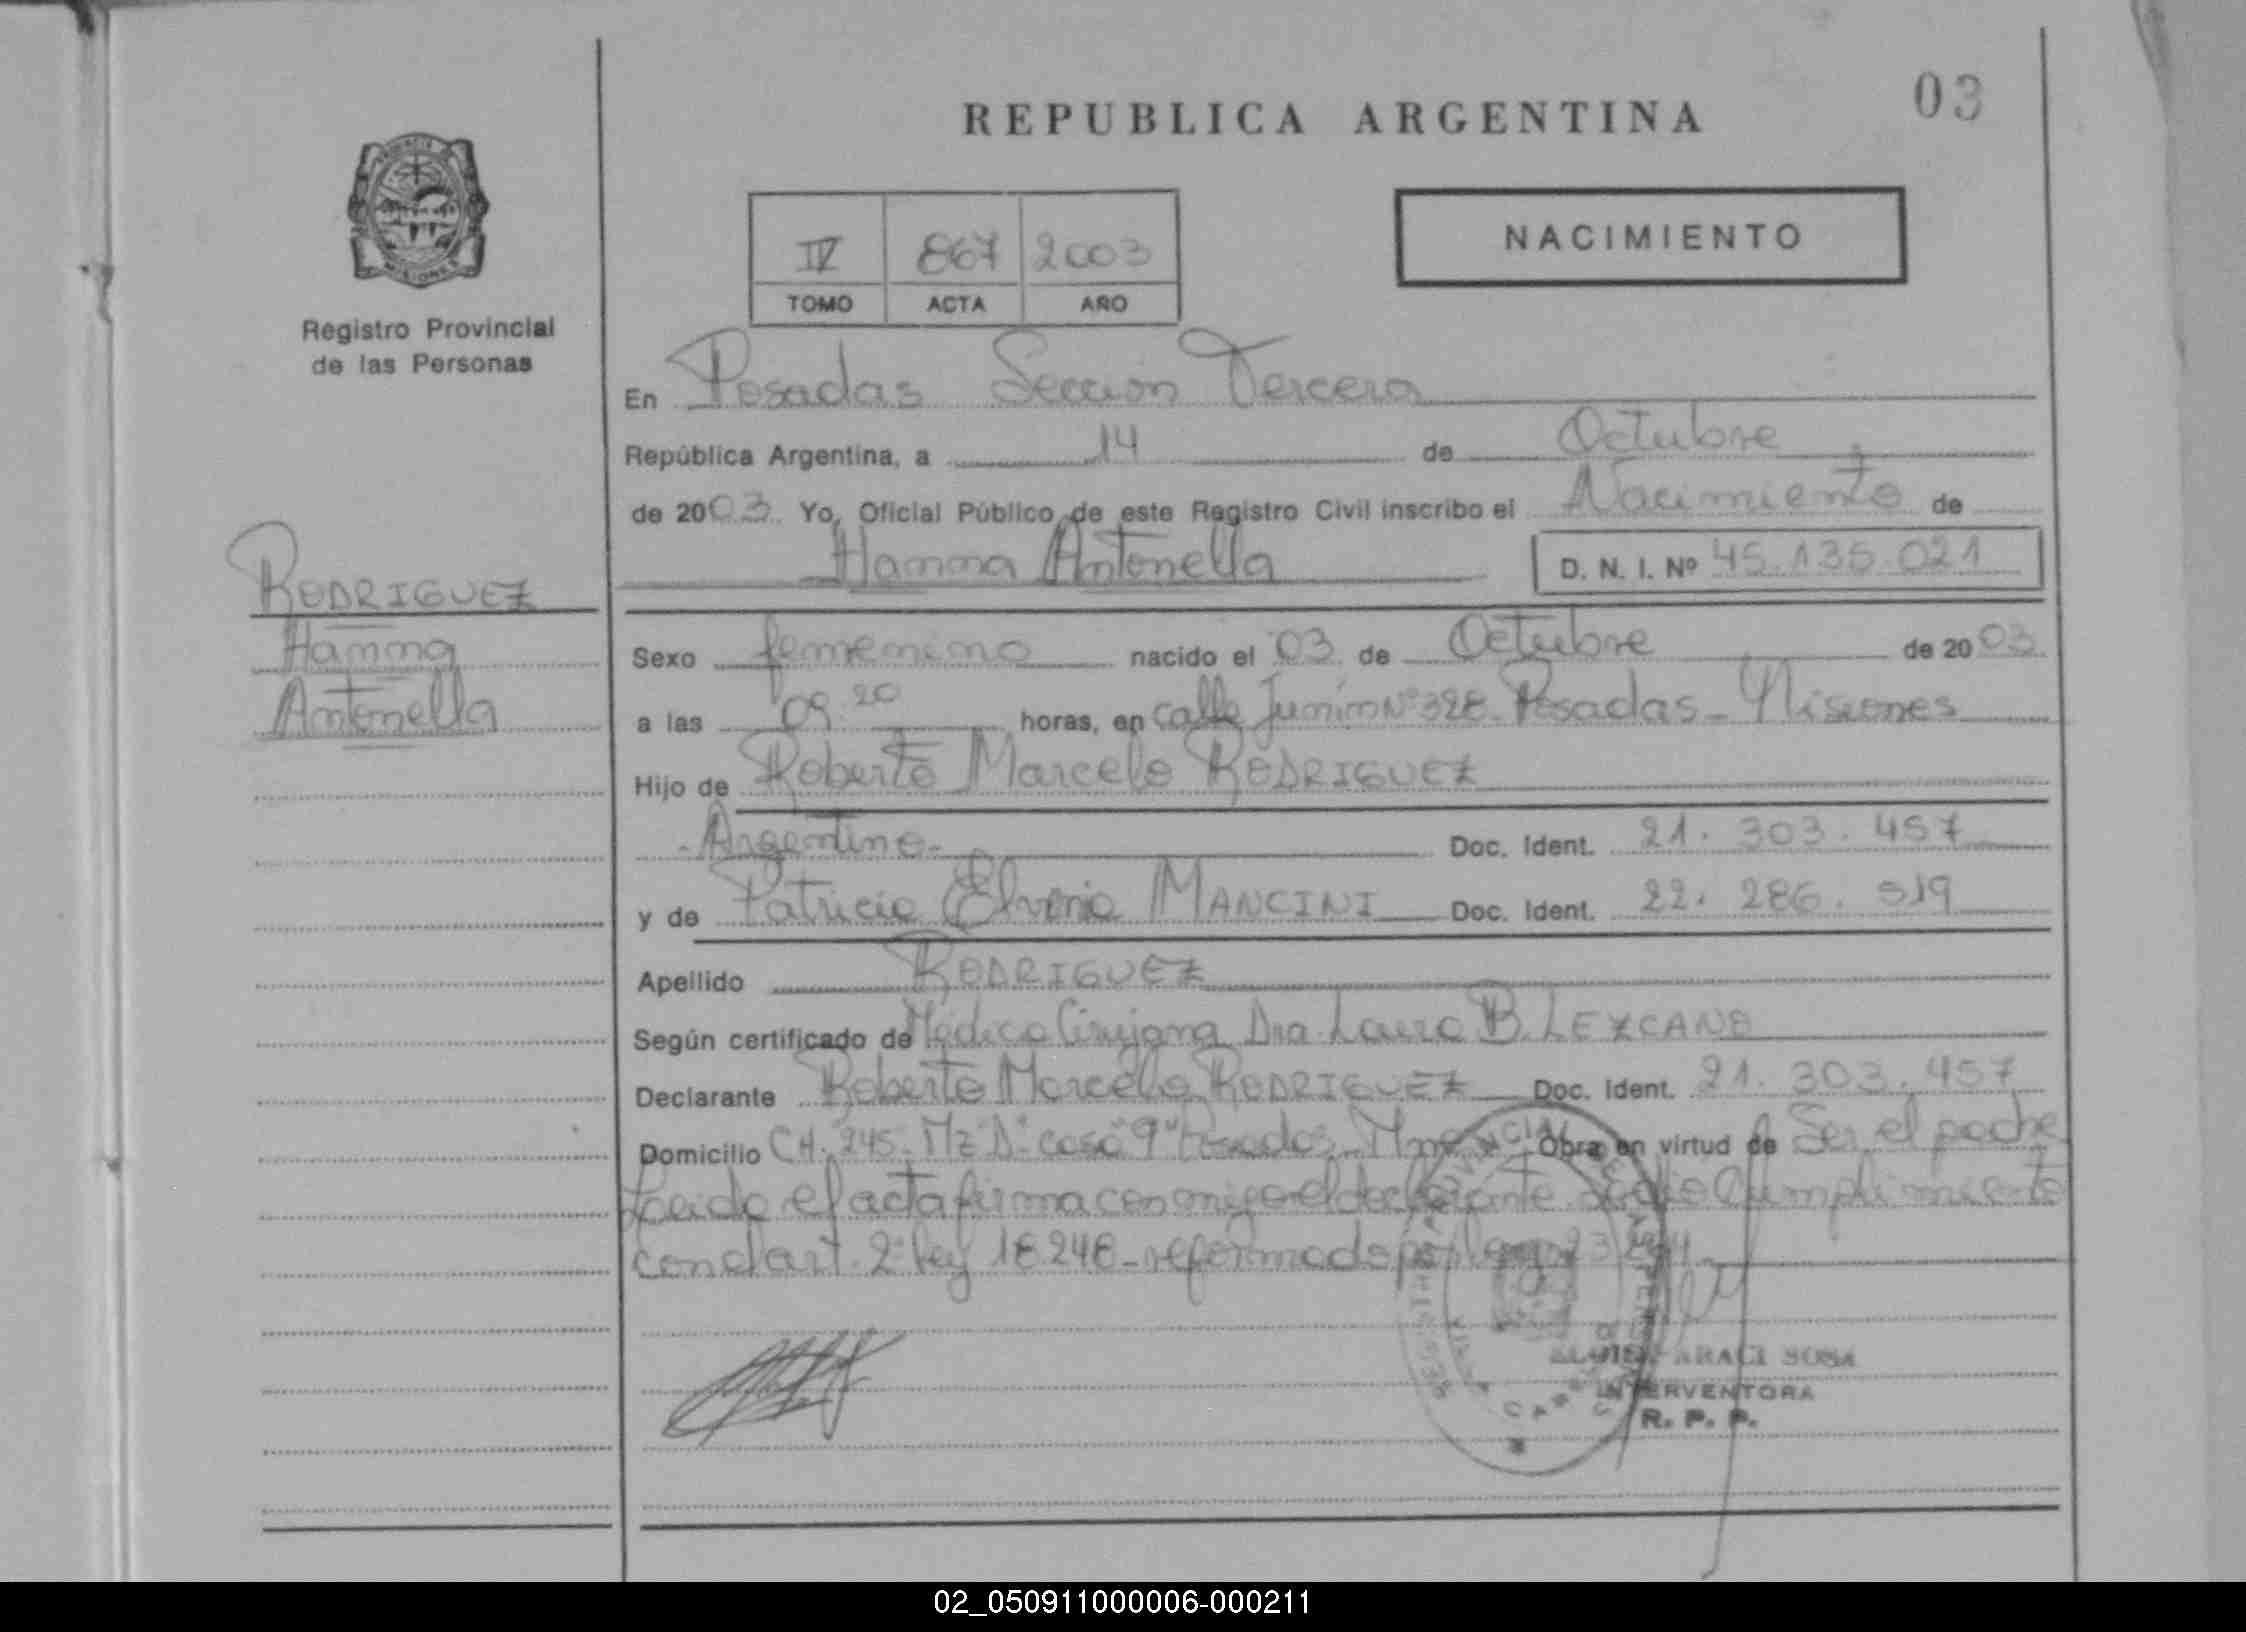 REPUBLICA ARGENTINA
03
Registro Provincial
de las Personas
NACIMIENTO
IV 867 2003
TOMO ACTA AÑO
En Posadas Sección Tercera
República Argentina, a 14 de Octubre
de 2003. Yo, Oficial Público de este Registro Civil inscribo el Nacimiento de
Hanna Antonella
D. N. I. Nº 45.135.021
RODRIGUEZ
Hanna
Antonella
Sexo femenino nacido el 03 de Octubre de 2003
a las 09.20 horas, en calle Junín Nº 328 Posadas - Misiones
Hijo de Roberto Marcelo RODRIGUEZ
- Argentino - Doc. Ident. 21.303.457
y de Patricia MANCINI Doc. Ident. 22.286.519
Apellido RODRIGUEZ
Según certificado de Médica Cirujana Dra. Laura B. LEZCANO
Declarante Roberto Marcelo RODRIGUEZ Doc. Ident. 21.303.457
Domicilio CH. 245 - Mz "D" casa "9" Posadas Mnes Obra en virtud de Ser el padre
Leída el acta firma conmigo el declarante se dio Cumplimiento
con el art. 2º ley 18248 - reformada por ley
ARACI SOSA
INTERVENTORA
R. P. P.
02_050911000006-000211